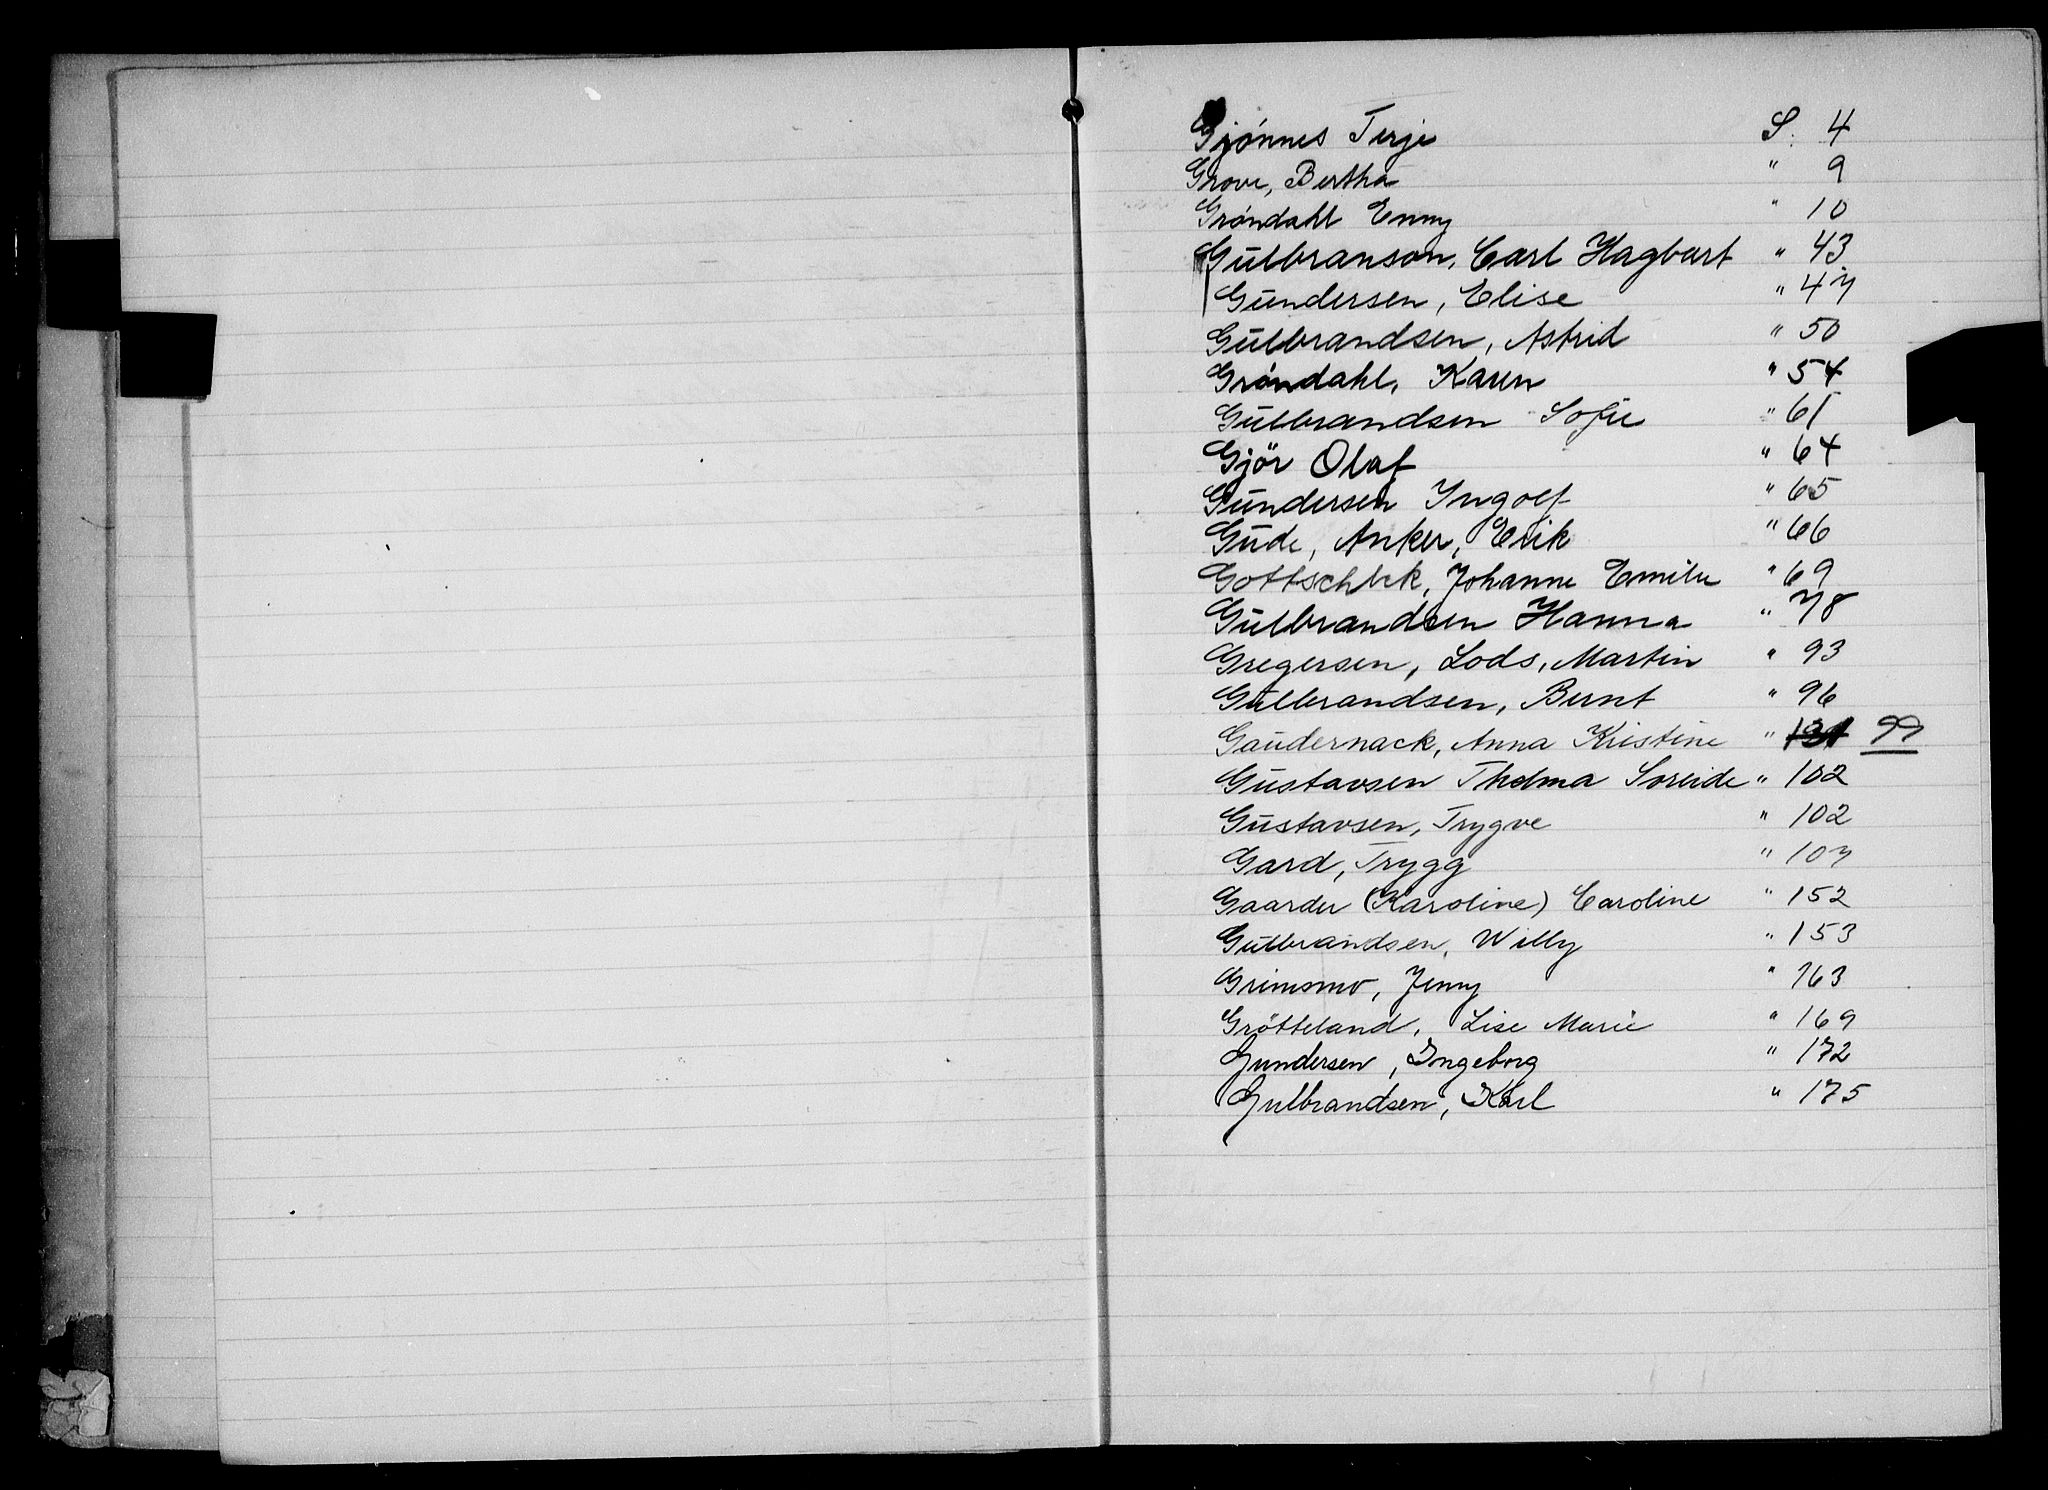 Gjónnes Terje S. 4
Grove, Bertha " 9
Gróndahl Enny " 10
Gulbranson, Carl Hagbart " 43
Gundersen, Elise " 47
Gulbrandsen, Astrid " 50
Gróndahl, Karen " 54
Gulbrandsen Sofie " 61
Gjör Olaf " 64
Gundersen Ingolf " 65
Gude, Anker, Erik " 66
Johanne Emilie " 69
Gulbrandsen Hanna " 78
Gregersen, Lods, Martin " 93
Gulbrandsen, Bernt " 96
Gaudernack, Anna Kristine " 131 99
Gustavsen Thelma Soreide " 102
Gustavsen, Trygve " 102
Gard, Trygg " 107
Gaarder (Karoline) Caroline " 152
Gulbrandsen, Willy " 153
Grimsmo, Jenny " 163
Grötteland, Lise Marie " 169
Gundersen, Ingeborg " 172
Gulbrandsen, Karl " 175